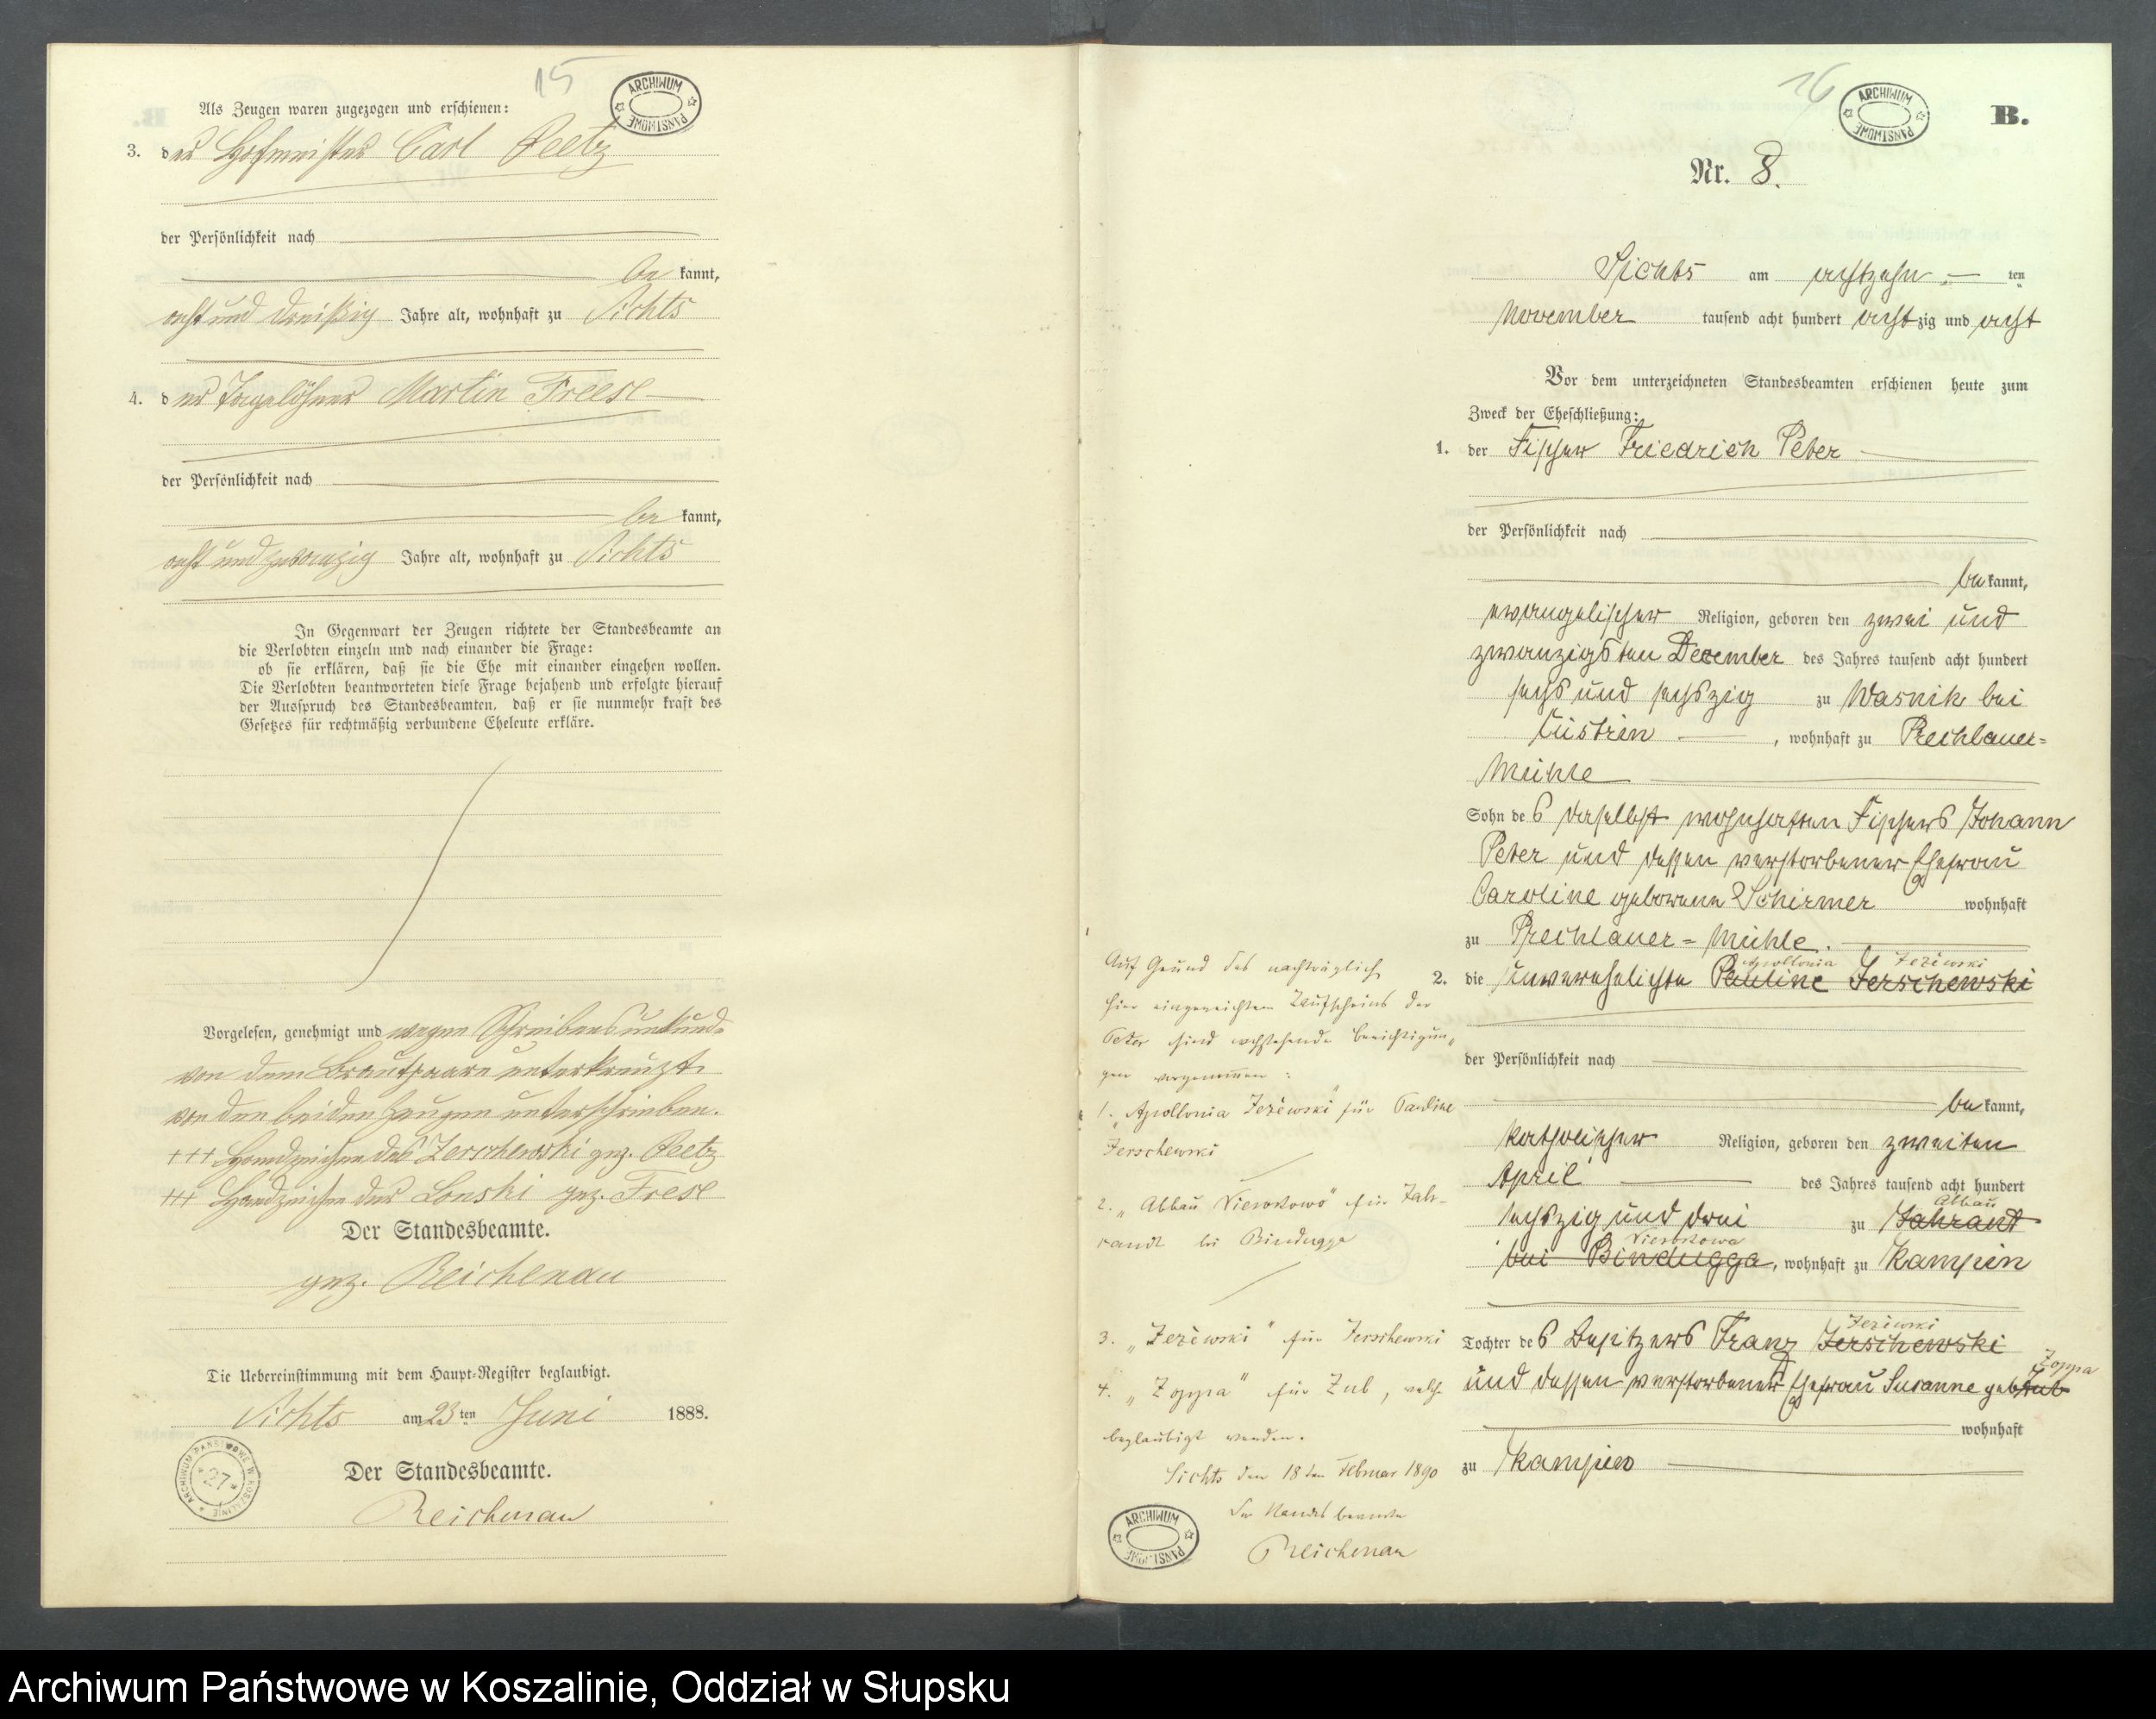 15
ARCHIWUM PAŃSTWOWE
Als Zeugen waren zugezogen und erschienen:
3. der Hofmeister Carl Peetz
der Persönlichkeit nach
be kannt,
acht und dreißig Jahre alt, wohnhaft zu Sichts
4. der Tagelöhner Martin Freese
der Persönlichkeit nach
be kannt,
acht und zwanzig Jahre alt, wohnhaft zu Sichts
In Gegenwart der Zeugen richtete der Standesbeamte an
die Verlobten einzeln und nach einander die Frage:
ob sie erklären, daß sie die Ehe mit einander eingehen wollen.
Die Verlobten beantworteten diese Frage bejahend und erfolgte hierauf
der Ausspruch des Standesbeamten, daß er sie nunmehr kraft des
Gesetzes für rechtmäßig verbundene Eheleute erkläre.
Vorgelesen, genehmigt und wegen Schreibensunkunde
von dem Brautpaare unterkreuzt
von den beiden Zeugen unterschrieben.
+++ Handzeichen des Zerschewski gez. Peetz
+++ Handzeichen der Lonski gez. Frese
Der Standesbeamte.
gez. Reichenau
Die Uebereinstimmung mit dem Haupt-Register beglaubigt.
Sichts am 23 ten Juni 1888.
Der Standesbeamte.
Reichenau
ARCHIWUM PAŃSTWOWE W KOSZALINIE
27
16
ARCHIWUM PAŃSTWOWE
B.
Nr. 8.
Sichts am achtzehn ten
November tausend acht hundert achtzig und acht
Vor dem unterzeichneten Standesbeamten erschienen heute zum
Zweck der Eheschließung:
1. der Fischer Friedrich Peter
der Persönlichkeit nach
be kannt,
evangelischer Religion, geboren den zwei und
zwanzigsten December des Jahres tausend acht hundert
sechs und sechszig zu Wasnik bei
Cüstrin, wohnhaft zu Prechlauer=
Mühle
Sohn des daselbst wohnhaften Fischers Johann
Peter und dessen verstorbener Ehefrau
Caroline geborene Schirmer wohnhaft
zu Prechlauer=Mühle.
Apollonia Jezéwski
2. die unverehelichte Pauline Jerschewski
der Persönlichkeit nach
be kannt,
katholischer Religion, geboren den zweiten
April des Jahres tausend acht hundert
Abbau
sechszig und drei zu Jahrandt
bei Bindugga, wohnhaft zu Kampin
Jeziwski
Tochter des Besitzers Franz Jerschewski
Zoppa
und dessen verstorbener Ehefrau Susanne geb Zub
wohnhaft
zu Kampin
Auf Grund des nachträglich
hier eingereichten Taufscheins der
Peter sind nachstehende Berichtigun-
gen vorgenommen:
1. "Apollonia Jezéwski" für Pauline
Jerschewski
2. "Abbau" für Jah-
randt bei Bindugga
3. "Jezéwski" für Jerschewski
4. "Zoppa" für Zub, welche
beglaubigt werden.
Sichts den 18 ten Februar 1890
Der Standesbeamte
Reichenau
ARCHIWUM PAŃSTWOWE
Archiwum Państwowe w Koszalinie, Oddział w Słupsku